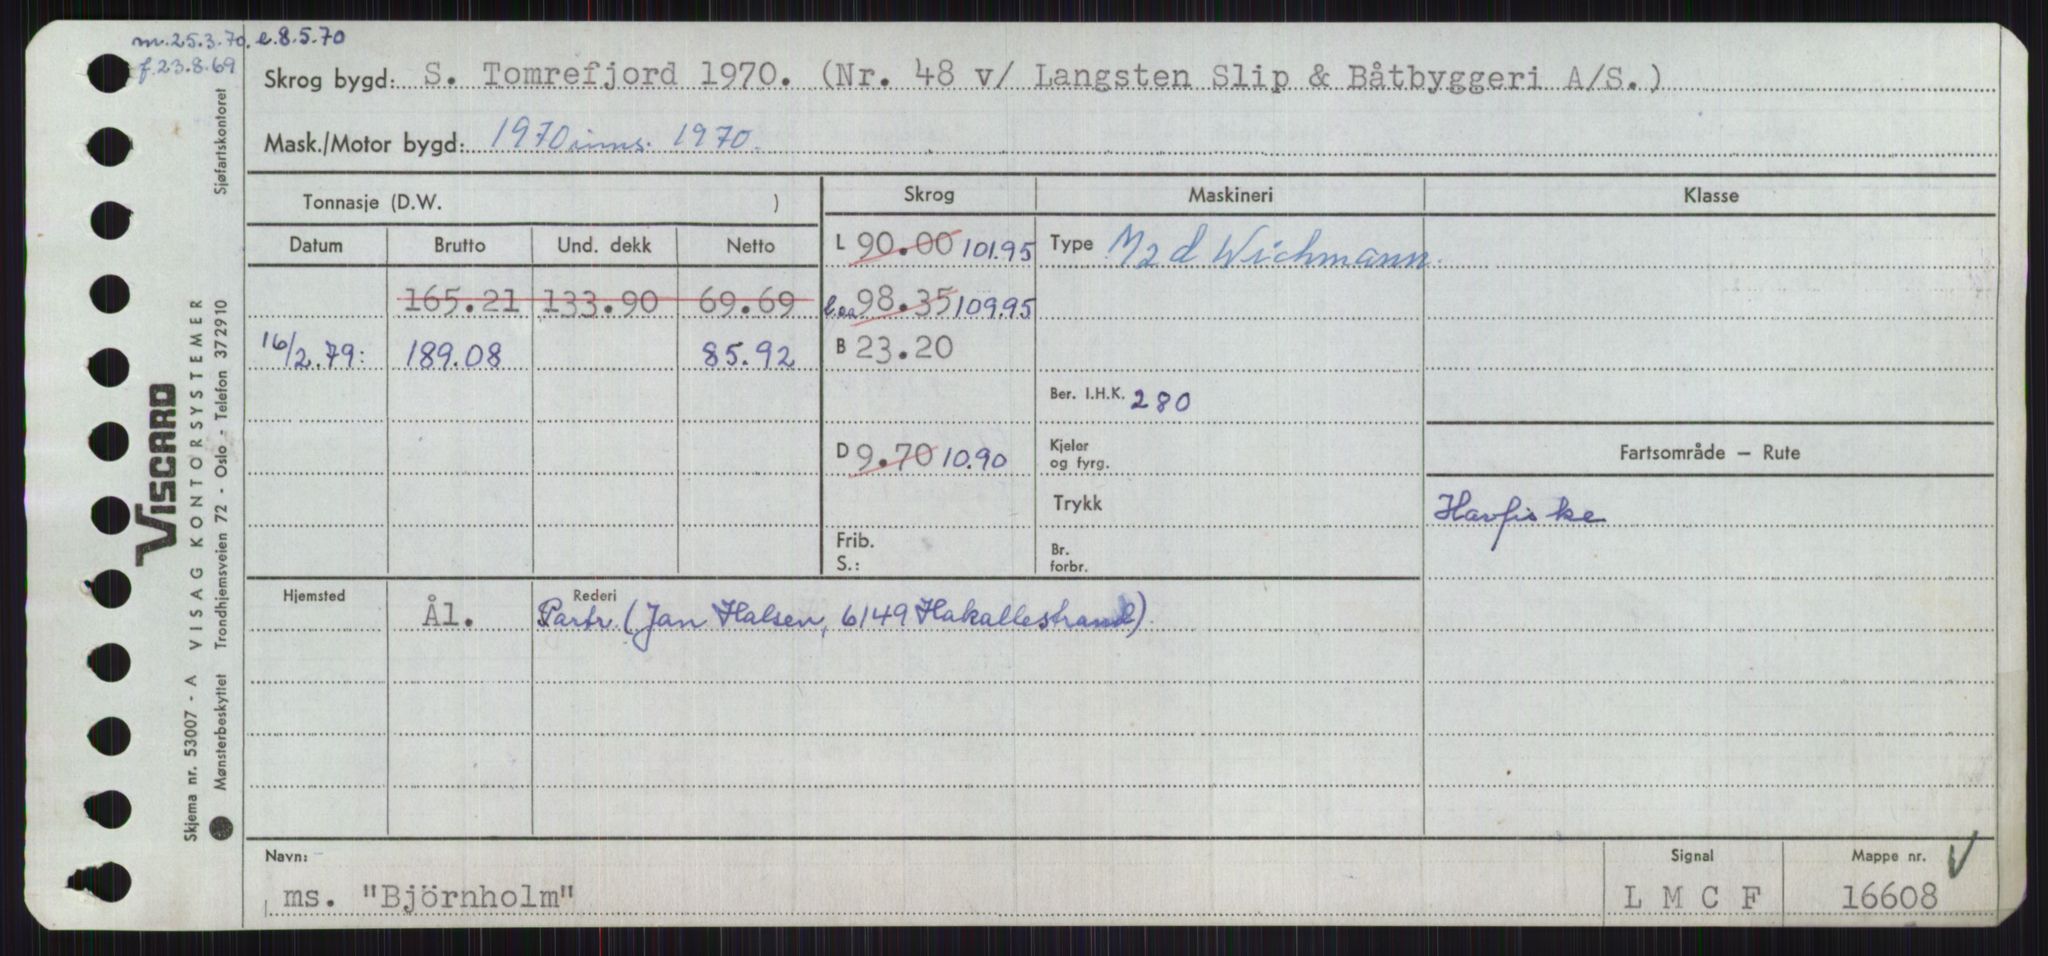 m. 25.3.70, e. 8.5.70
f. 23.8.69
Skrog bygd: S. Tomrefjord 1970. (Nr. 48 v/ Langsten Slip & Båtbyggeri A/S.)
Mask./Motor bygd: 1970 inns. 1970.
Tonnasje (D.W. ) Skrog Maskineri Klasse
Datum Brutto Und. dekk Netto L 90.00 101.95 Type M2d Wichmann.
165.21 133.90 69.69 l.oa 98.35 109.95
16/2.79: 189.08 85.92 B 23.20
Ber. I.H.K. 280
D 9.70 10.90 Kjeler og fyrg. Fartsområde — Rute
Trykk Havfiske
Frib.
S.: Br. forbr.
Hjemsted Ål. Rederi Partr. (Jan Halsen, 6149 Hakallestrand)
Navn: Signal Mappe nr. V
ms. "Björnholm" L M C F 16608
VISCARD
Skjema nr. 53007 - A VISAG KONTORSYSTEMER
Mønsterbeskyttet Trondhjemsveien 72 - Oslo - Telefon 372910 Sjøfartskontoret